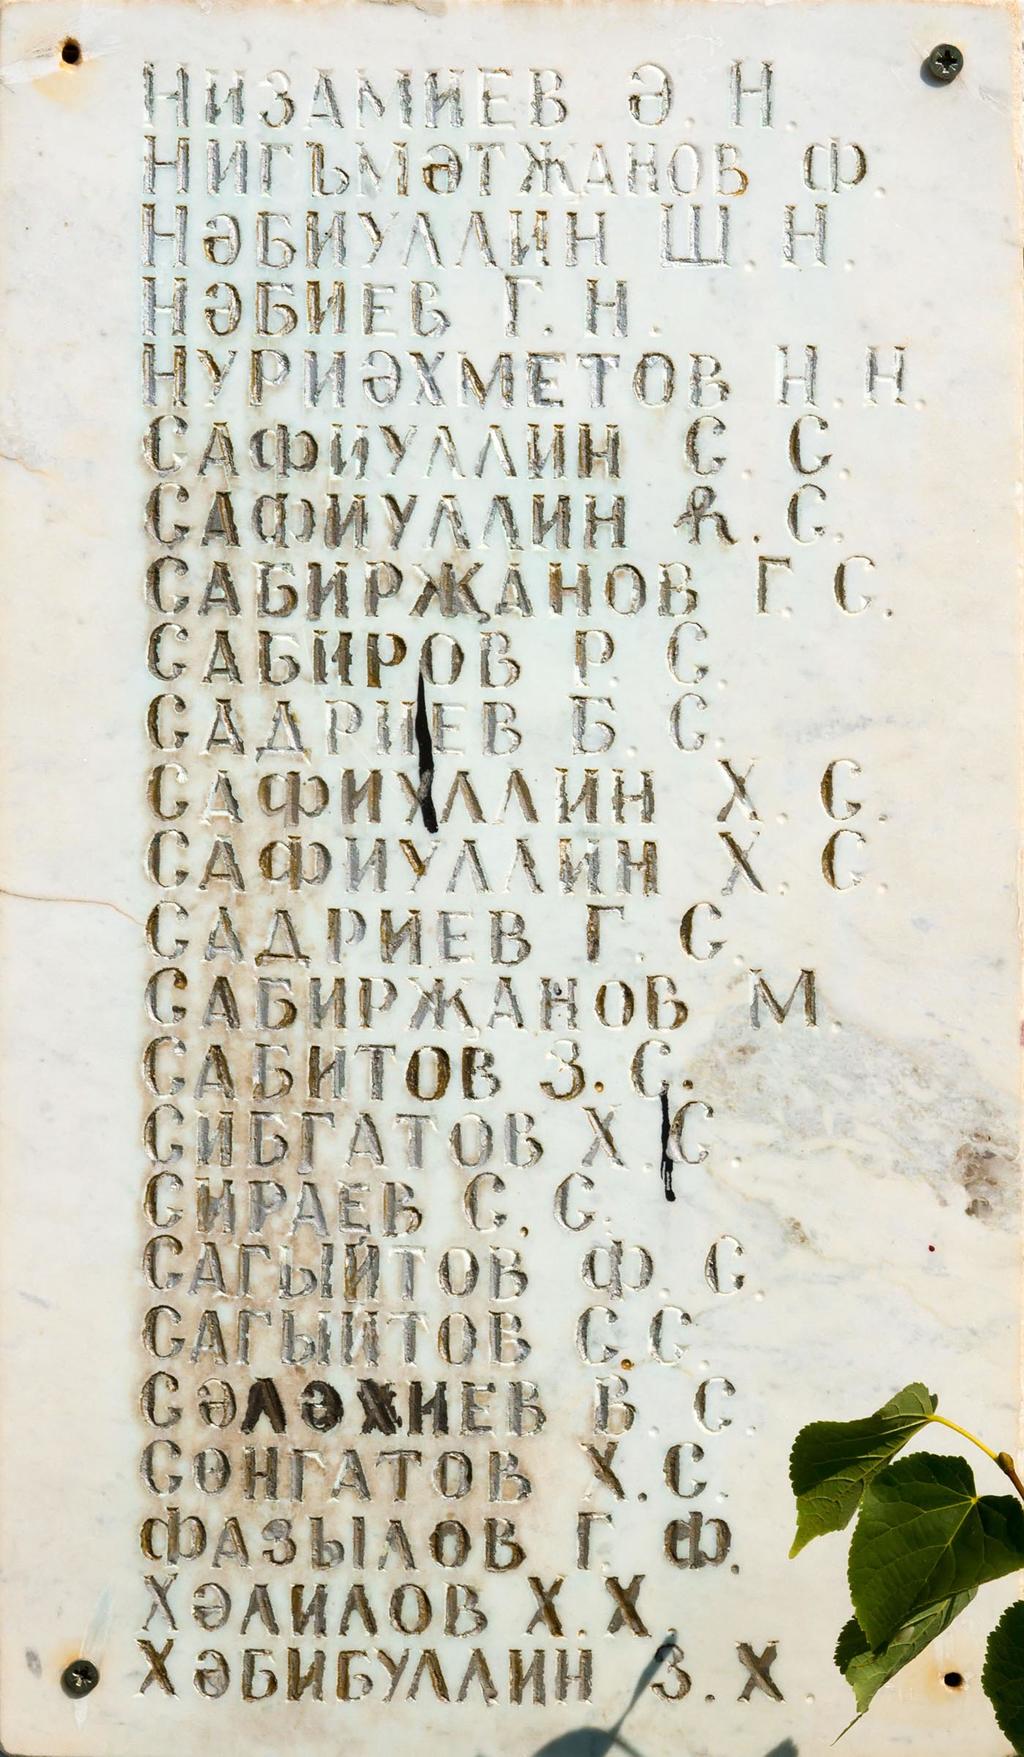 НИЗАМИЕВ Ә. Н.
НИГЪМӘТЖАНОВ Ф.
НӘБИУЛЛИН Ш. Н.
НӘБИЕВ Г. Н.
НУРИӘХМЕТОВ Н. Н.
САФИУЛЛИН С. С.
САФИУЛЛИН Һ. С.
САБИРҖАНОВ Г. С.
САБИРОВ Р. С.
САДРИЕВ Б. С.
САФИУЛЛИН Х. С.
САФИУЛЛИН Х. С.
САДРИЕВ Г. С.
САБИРҖАНОВ М.
САБИТОВ З. С.
СИБГАТОВ Х. С.
СИРАЕВ С. С.
САГЫЙТОВ Ф. С.
САГЫЙТОВ С. С.
СӘЛӘХИЕВ В. С.
СӨНГАТОВ Х. С.
ФАЗЫЛОВ Г. Ф.
ХӘЛИЛОВ Х. Х.
ХӘБИБУЛЛИН З. Х.